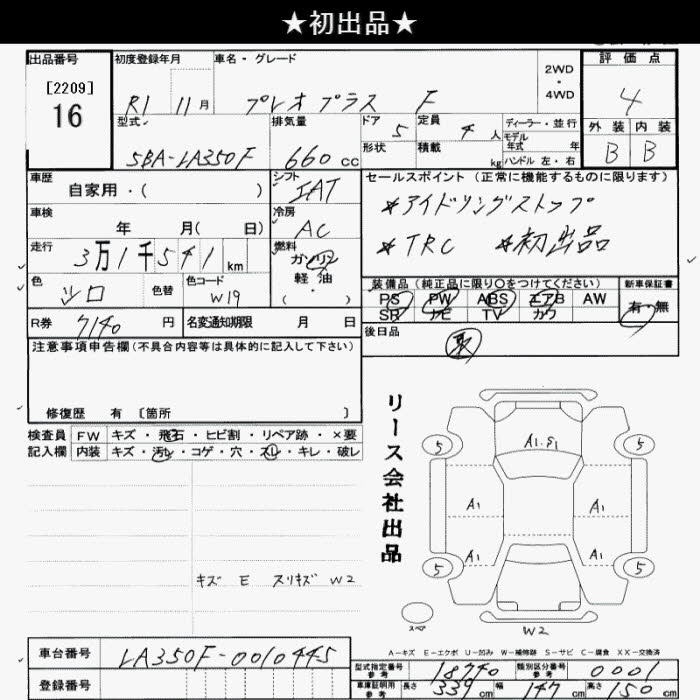 ★初出品★
出品番号 初度登録年月 車名・グレード 2WD・4WD 評価点
[2209]
16 R1 11月 プレオプラス F 4
型式 排気量 ドア 定員 ディーラー・並行 外装 内装
5BA-LA350F 660cc 5 4人 モデル年式 年 B B
形状 積載 kg ハンドル 左・右
車歴 シフト セールスポイント (正常に機能するものに限ります)
自家用・( ) IAT ★アイドリングストップ
車検 冷房
年 月( 日) AC ★TRC ★初出品
走行 燃料
3万1千541km ガソリン
軽・油
( ・ )
色 色替 色コード 装備品 (純正品に限り〇をつけてください) 新車保証書
シロ W19 PS PW ABS エアB AW 有・無
SR ナビ TV カワ
R券 7140円 名変通知期限 月 日 後日品
取
注意事項申告欄 (不具合内容等は具体的に記入して下さい)
修復歴 有 〔箇所 〕
検査員 FW キズ・飛石・ヒビ割・リペア跡・×要
記入欄 内装 キズ・汚レ・コゲ・穴・スレ・キレ・破レ
リース会社出品
A1.S1
5 5
A1 A1
A1 A1
5 5
キズ E スリキズ W2
スペア
W2
A－キズ E－エクボ U－凹み W－補修跡 S－サビ C－腐食 XX－交換済
車台番号 LA350F-0010445
登録番号
型式指定番号 参考 18740 類別区分番号 参考 0001
車庫証明用 参考 長さ 339cm 幅 147cm 高さ 150cm